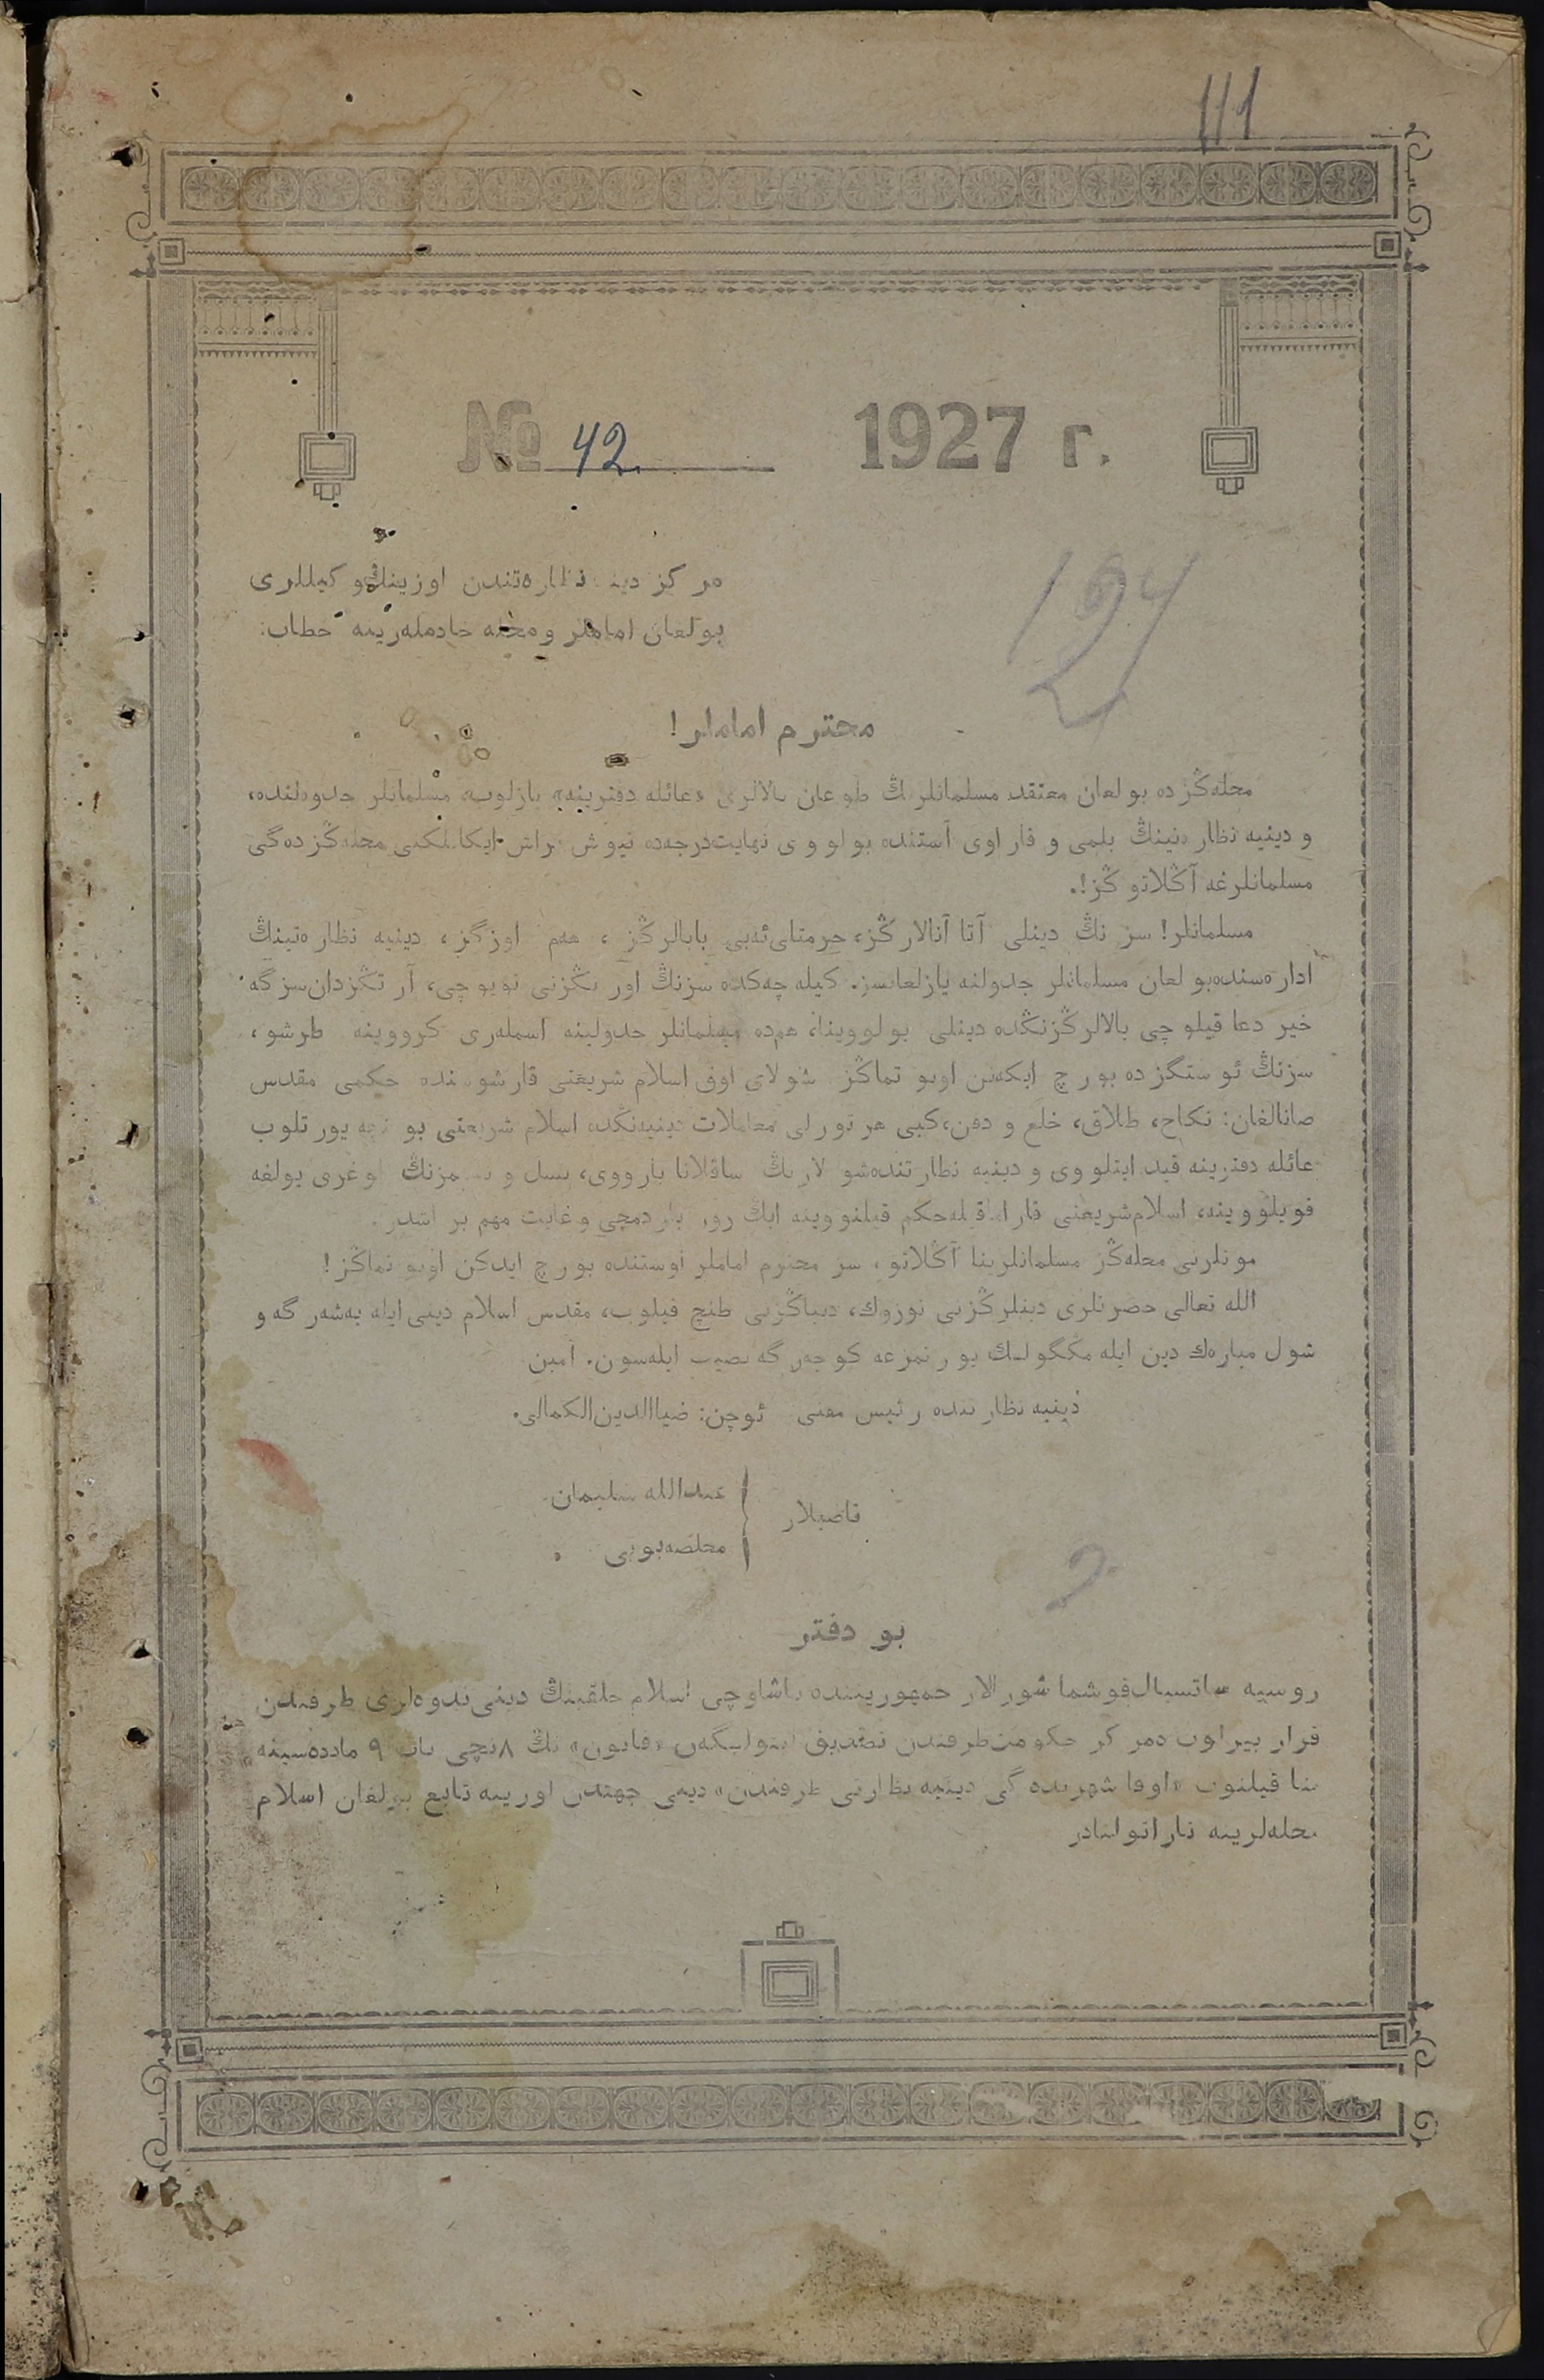 111
№ 42 1927 г.
194
مركز دينيه نظارەتندن اوزينڭ وكيللرى
بولغان اماملر و محله خادملەرينه خطاب:
محترم اماملر!
محلەڭزده بولغان معتقد مسلمانلرنڭ طوغان بالالرى «عائله دفترينه» يازلوب، مسلمانلر جدولنده،
و دينيه نظارەتينڭ بلمى و قاراوى آستنده بولووى نهايت درجەده تيوش بر اش ايكانلكنى محلەڭزدەگى
مسلمانلرغه آڭلاتوڭز!.
مسلمانلر! سزنڭ دينلى آتا آنالارڭز، حرمتلى ئەبى بابالرڭز، هەم اوزڭز، دينيه نظارەتينڭ
ادارەسنده بولغان مسلمانلر جدولنه يازلغانسز. كيله چەكده سزنڭ اورنڭزنى تويوچى، آرتڭزدان سزگه
خير دعا قيلوچى بالالرڭزنڭده دينلى بولووينا، هم ده مسلمانلر جدولينه اسملەرى كرووينه طرشو،
سزنڭ ئوستڭزده بورچ ايكەنن اونوتماڭز شولاى اوق اسلام شريعتى قارشوسنده حكمى مقدس
صانالغان: نكاح، طلاق، خلع و دفن، كبى هر تورلى معاملات دينيەنڭده اسلام شريعتى بوينچه يورتلوب
عائله دفترينه قيد ايتلووى و دينيه نظارتنده شولارنڭ ساقلانا بارووى، نسل و نسبمزنڭ طوغرى يولغه
قويلووينه، اسلام شريعتى قارارى ايله حكم قيلنووينه ايڭ زور ياردمچى و غايت مهم بر اشدر.
مونلرنى محلەڭز مسلمانلرينا آڭلاتو، سز محترم اماملر اوستنده بورچ ايدكن اونوتماڭز!
الله تعالى حضرتلرى دينلرڭزنى توزوك، دنياڭزنى طنچ قيلوب، مقدس اسلام دينى ايله يەشەرگه و
شول مبارەك دين ايله مڭگولك يورتمزغه كوچەرگه نصيب ايله سون. آمين
دينيه نظارتنده رئيس مفتى ئوچن: ضياالدين الكمالى.
قاضيلار
عبدالله سليمان
مخلصه بوبى
بو دفتر
روسيه ساتسيال قوشما شورالار جمهوريتنده ياشاوچى اسلام خلقينڭ دينى ندوەلرى طرفندن
قرار بيرلوب دمر كز حكومت طرفندن تصديق ايتولگەن «قانون» نڭ ٨نچى باب ٩ ماددەسينه
بنا قيلنوب «اوفا شهرندەگى دينيه نظارتى طرفندن» دينى جهتدن اورينه تابع بولغان اسلام
محلەلرينه تاراتولنادر